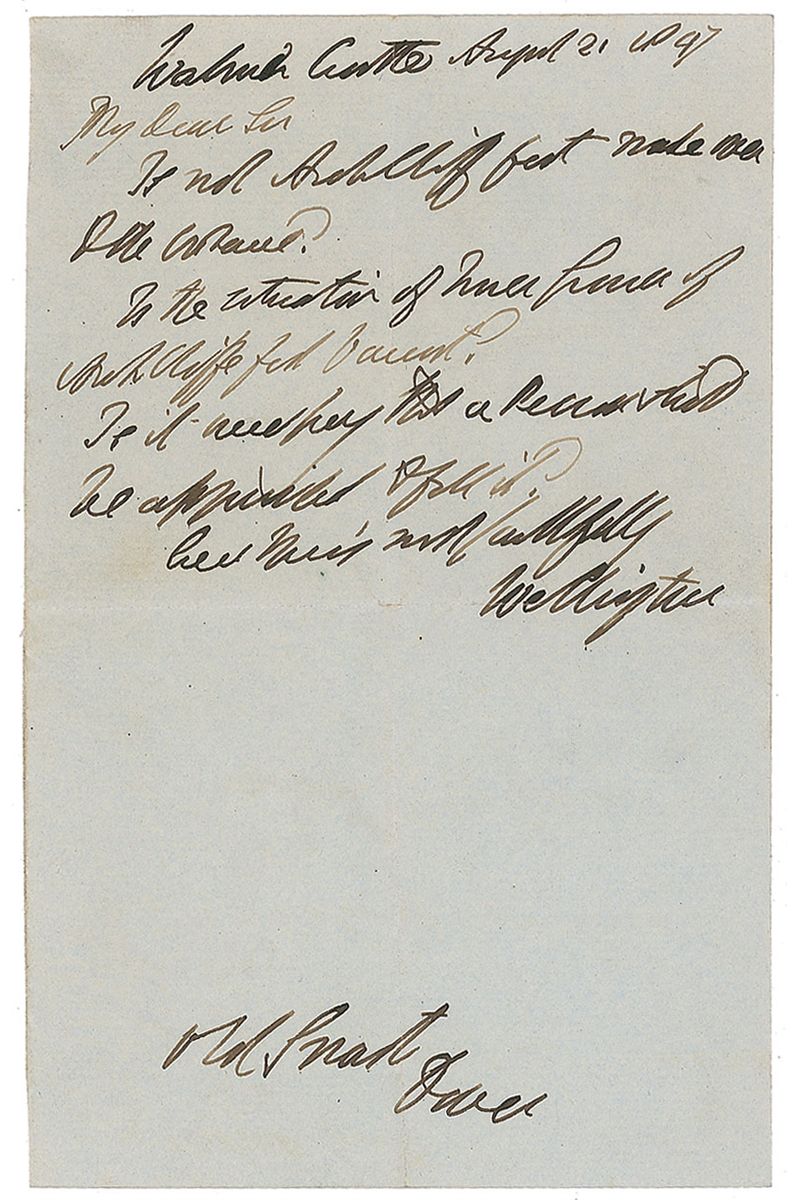 Walmer Castle August 21 1847
My Dear Sir
Is not Archcliff fort made over
to the Ordnance?
Is the situation of Gunner of
Archcliffe fort Vacant?
Is it necessary that a Person should
be appointed to fill it?
Ever Yours most faithfully
Wellington
Dover